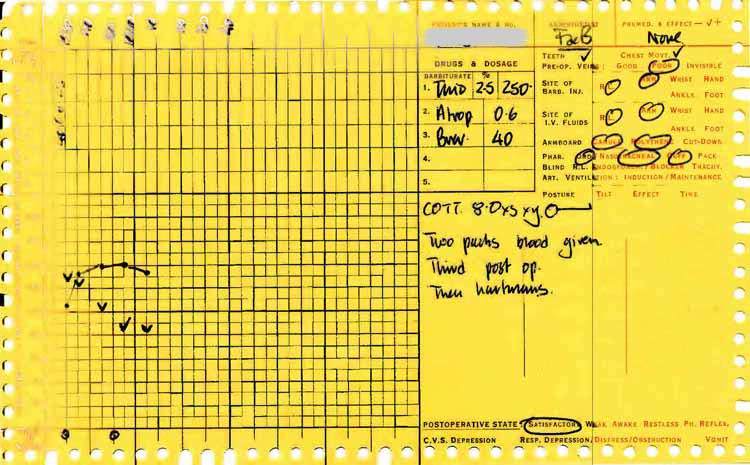 PATIENT'S NAME & NO.
ANAESTHETIST
PREMED. & EFFECT — √ +
None
DRUGS & DOSAGE
BARBITURATE %
1. Thio 2.5 250.
2. Atrop 0.6
3. 40
4.
5.
TEETH CHEST MOVT.
PRE-OP. VEINS: GOOD POOR INVISIBLE
SITE OF BARB. INJ. R.L. ARM WRIST HAND
ANKLE FOOT
SITE OF I.V. FLUIDS R.L. ARM WRIST HAND
ANKLE FOOT
ARMBOARD CANULA POLYTHENE CUT-DOWN.
PHAR. ORO NASOTRACHEAL CUFF PACK
BLIND R.L. ENDOBRONCH./BLOCKER TRACHY.
ART. VENTILATION: INDUCTION/MAINTENANCE
POSTURE TILT EFFECT TIME
COTT 8.0
Two packs blood given.
Third post op.
Then hartmans.
POSTOPERATIVE STATE: SATISFACTORY WEAK AWAKE RESTLESS PH. REFLEX.
C.V.S. DEPRESSION RESP. DEPRESSION/DISTRESS/OBSTRUCTION VOMIT